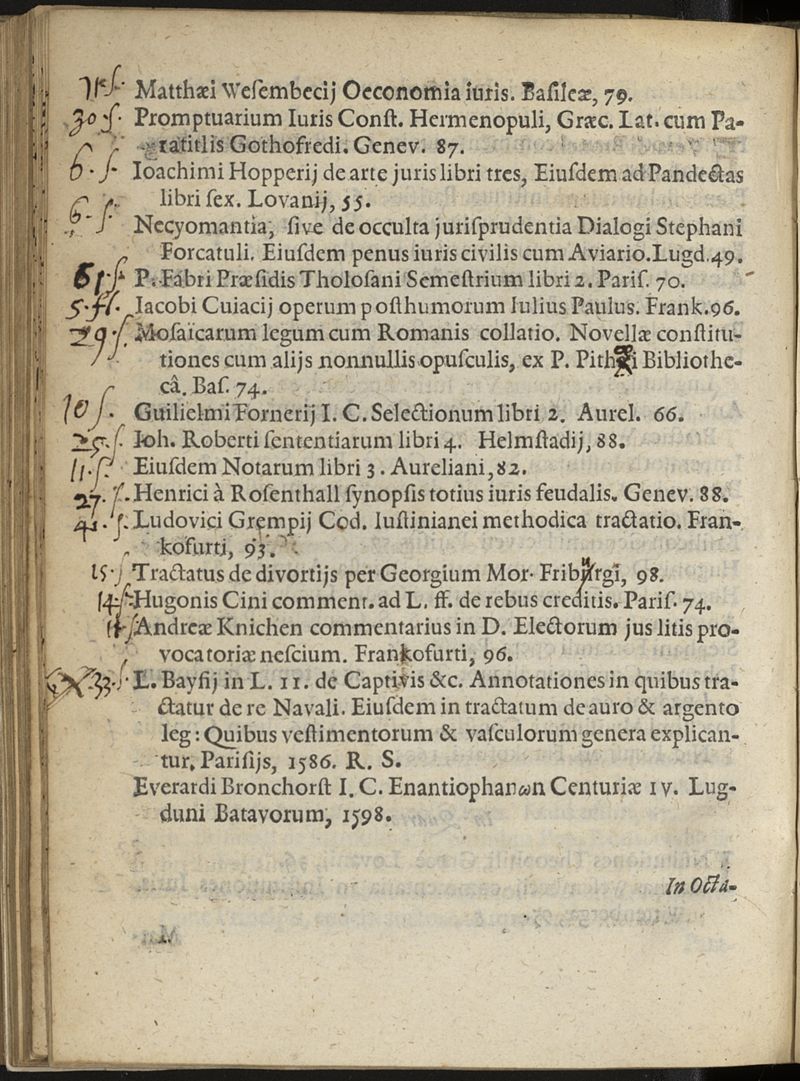 Matthæi Weſembecij Oeconomia iuris. Baſileæ, 79.
30 ſ. Promptuarium Iuris Conſt. Hermenopuli, Græc. Lat. cum Pa-
ratitlis Gothofredi. Genev. 87.
6 · ſ · Ioachimi Hopperij de arte juris libri tres, Eiuſdem ad Pandectas
libri ſex. Lovanij, 55.
6 · ſ · Necyomantia, ſive de occulta juriſprudentia Dialogi Stephani
Forcatuli. Eiuſdem penus iuris civilis cum Aviario. Lugd. 49.
P. Fabri Præſidis Tholoſani Semeſtrium libri 2. Pariſ. 70.
5 · fl · Jacobi Cuiacij operum poſthumorum Iulius Paulus. Frank. 96.
29 · ſ. Moſaïcarum legum cum Romanis collatio. Novellæ conſtitu-
tiones cum alijs nonnullis opuſculis, ex P. Pithœi Bibliothe-
câ. Baſ. 74.
10 ſ. Guilielmi Fornerij I. C. Selectionum libri 2. Aurel. 66.
Ioh. Roberti ſententiarum libri 4. Helmſtadij, 88.
11 · ſ. Eiuſdem Notarum libri 3. Aureliani, 82.
27 · ſ. Henrici à Roſenthall ſynopſis totius iuris feudalis. Genev. 88.
Ludovici Grempij Cod. Iuſtinianei methodica tractatio. Fran-
kofurti, 93.
15 · ſ Tractatus de divortijs per Georgium Mor. Friburgi, 98.
14 · ſ. Hugonis Cini comment. ad L. ff. de rebus creditis. Pariſ. 74.
Andreæ Knichen commentarius in D. Electorum jus litis pro-
vocatoriæ neſcium. Frankofurti, 96.
33 · ſ · L. Bayſij in L. 11. de Captivis &c. Annotationes in quibus tra-
ctatur de re Navali. Eiuſdem in tractatum de auro & argento
leg: Quibus veſtimentorum & vaſculorum genera explican-
tur, Pariſijs, 1586. R. S.
Everardi Bronchorſt I. C. Enantiophanωn Centuriæ IV. Lug-
duni Batavorum, 1598.
In Octa-